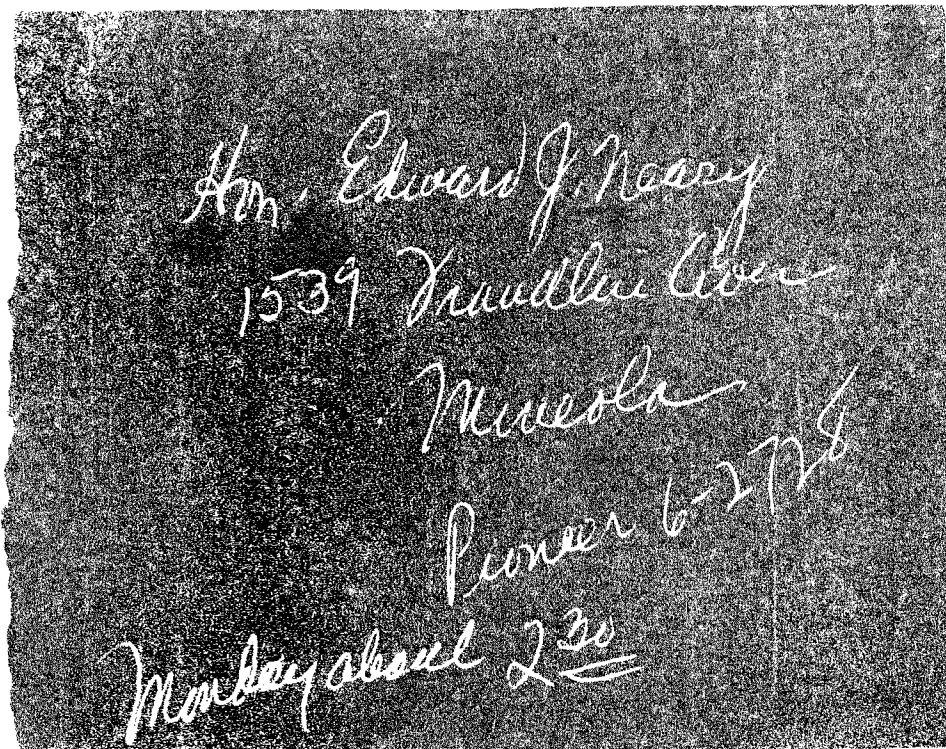 Hon. Edward J. Neary
1539 Franklin Aven
Mineola
Pioneer 6-2728
Monday about 2 30